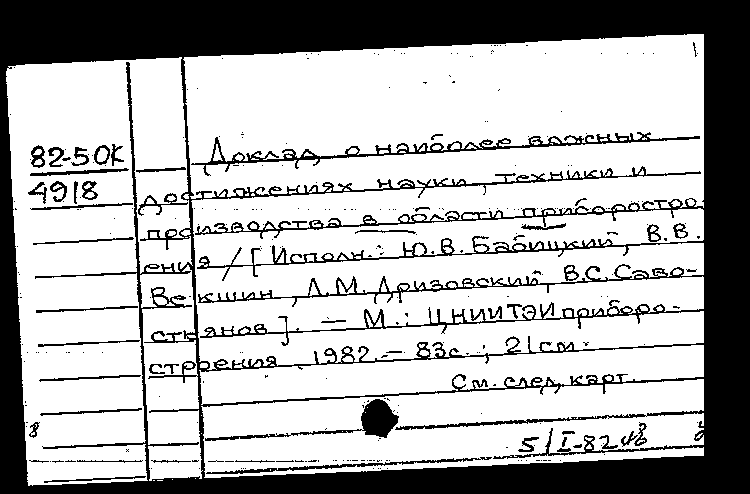 82-5 ОК
4918
Доклад о наиболее важных
достижениях науки, техники и
производства в области приборостро-
ения / [Исполн.: Ю.В. Бабицкий, В.В.
Векшин, Л.М. Дризовский, В.С. Саво-
стьянов]. — М.: ЦНИИТЭИ приборо-
строения, 1982. — 83с.; 21см.
См. след. карт.
8
5/I-82